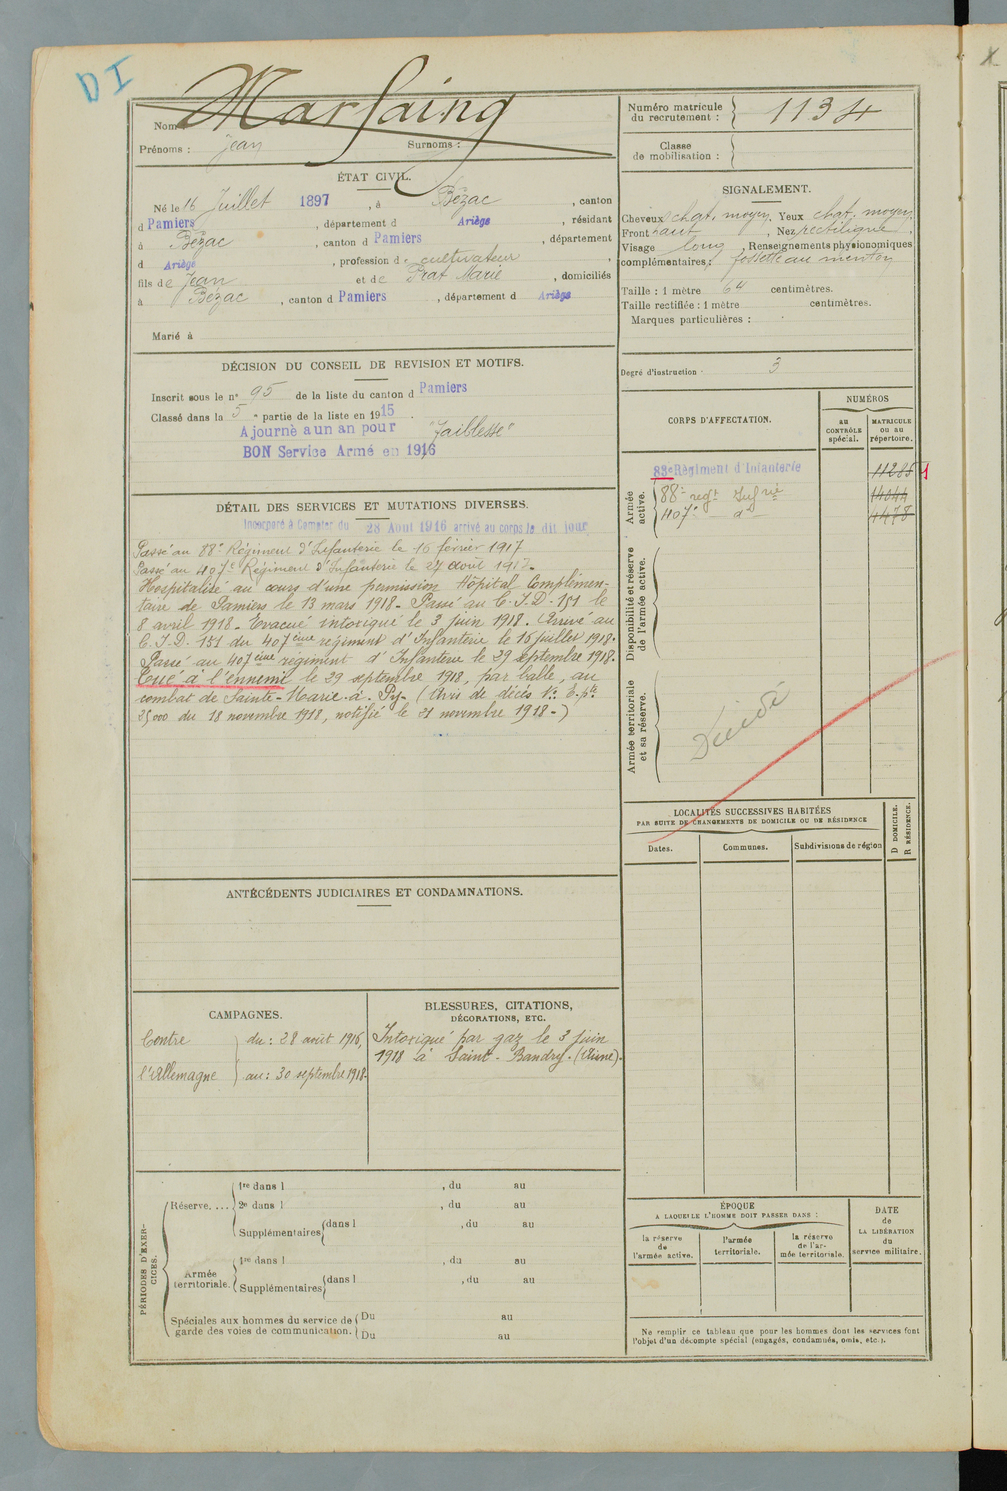 DI
Nom Marfaing
Prénoms : Jean Surnoms :
Numéro matricule du recrutement : 1134
Classe de mobilisation :
ÉTAT CIVIL.
Né le 16 Juillet 1897, à Bézac, canton
d Pamiers, département d Ariège, résidant
à Bézac, canton d Pamiers, département
d Ariège, profession de cultivateur,
fils de Jean et de Prat Marie, domiciliés
à Bézac, canton d Pamiers, département d Ariège
Marié à
SIGNALEMENT.
Cheveux chat. moyen, Yeux chat. moyen,
Front haut, Nez rectiligne.
Visage long, Renseignements physionomiques
complémentaires : fossette au menton
Taille : 1 mètre 64 centimètres.
Taille rectifiée : 1 mètre centimètres.
Marques particulières :
Degré d'instruction : 3
DÉCISION DU CONSEIL DE REVISION ET MOTIFS.
Inscrit sous le n° 95 de la liste du canton d Pamiers
Classé dans la 5e partie de la liste en 1915.
Ajourné a un an pour "faiblesse"
BON Service Armé en 1916
DÉTAIL DES SERVICES ET MUTATIONS DIVERSES.
Incorporé à Compter du 28 Août 1916 arrivé au corps le dit jour
Passé au 88e Régiment d'Infanterie le 16 février 1917
Passé au 407e Régiment d'Infanterie le 27 août 1917.
Hospitalisé au cours d'une permission Hôpital Complémen-
taire de Pamiers le 13 mars 1918. Passé au C.I.D. 151 le
8 avril 1918. Evacué intoxiqué le 3 juin 1918. Arrivé au
C.I.D. 151 du 407ème régiment d'Infanterie le 16 juillet 1918.
Passé au 407ème régiment d'Infanterie le 29 septembre 1918.
Tué à l'ennemi le 29 septembre 1918, par balle, au
combat de Sainte-Marie-à-Py. (Avis de décès N°
du 18 novembre 1918, notifié le 21 novembre 1918.)
CORPS D'AFFECTATION.
NUMÉROS
au CONTRÔLE spécial.
MATRICULE ou au répertoire.
Armée active.
83e Régiment d'Infanterie 11285
88e regt Infrie 14044
407e do 4478
Disponibilité et réserve de l'armée active.
Armée territoriale et sa réserve.
Décédé
LOCALITÉS SUCCESSIVES HABITÉES
PAR SUITE DE CHANGEMENTS DE DOMICILE OU DE RÉSIDENCE
Dates. Communes. Subdivisions de région
D DOMICILE.
R RÉSIDENCE.
ANTÉCÉDENTS JUDICIAIRES ET CONDAMNATIONS.
CAMPAGNES.
Contre du : 28 août 1916,
l'Allemagne au : 30 septembre 1918.
BLESSURES, CITATIONS,
DÉCORATIONS, ETC.
Intoxiqué par gaz le 3 juin
1918 à Saint-Bandry. (Aisne).
PÉRIODES D'EXERCICES.
Réserve....
1re dans l , du au
2e dans l , du au
Supplémentaires dans l , du au
Armée territoriale.
1re dans l , du au
Supplémentaires dans l , du au
Spéciales aux hommes du service de
garde des voies de communication.
Du au
Du au
ÉPOQUE
A LAQUELLE L'HOMME DOIT PASSER DANS :
la réserve de l'armée active.
l'armée territoriale.
la réserve de l'armée territoriale.
DATE de LA LIBÉRATION du service militaire.
Ne remplir ce tableau que pour les hommes dont les services font
l'objet d'un décompte spécial (engagés, condamnés, omis, etc.).